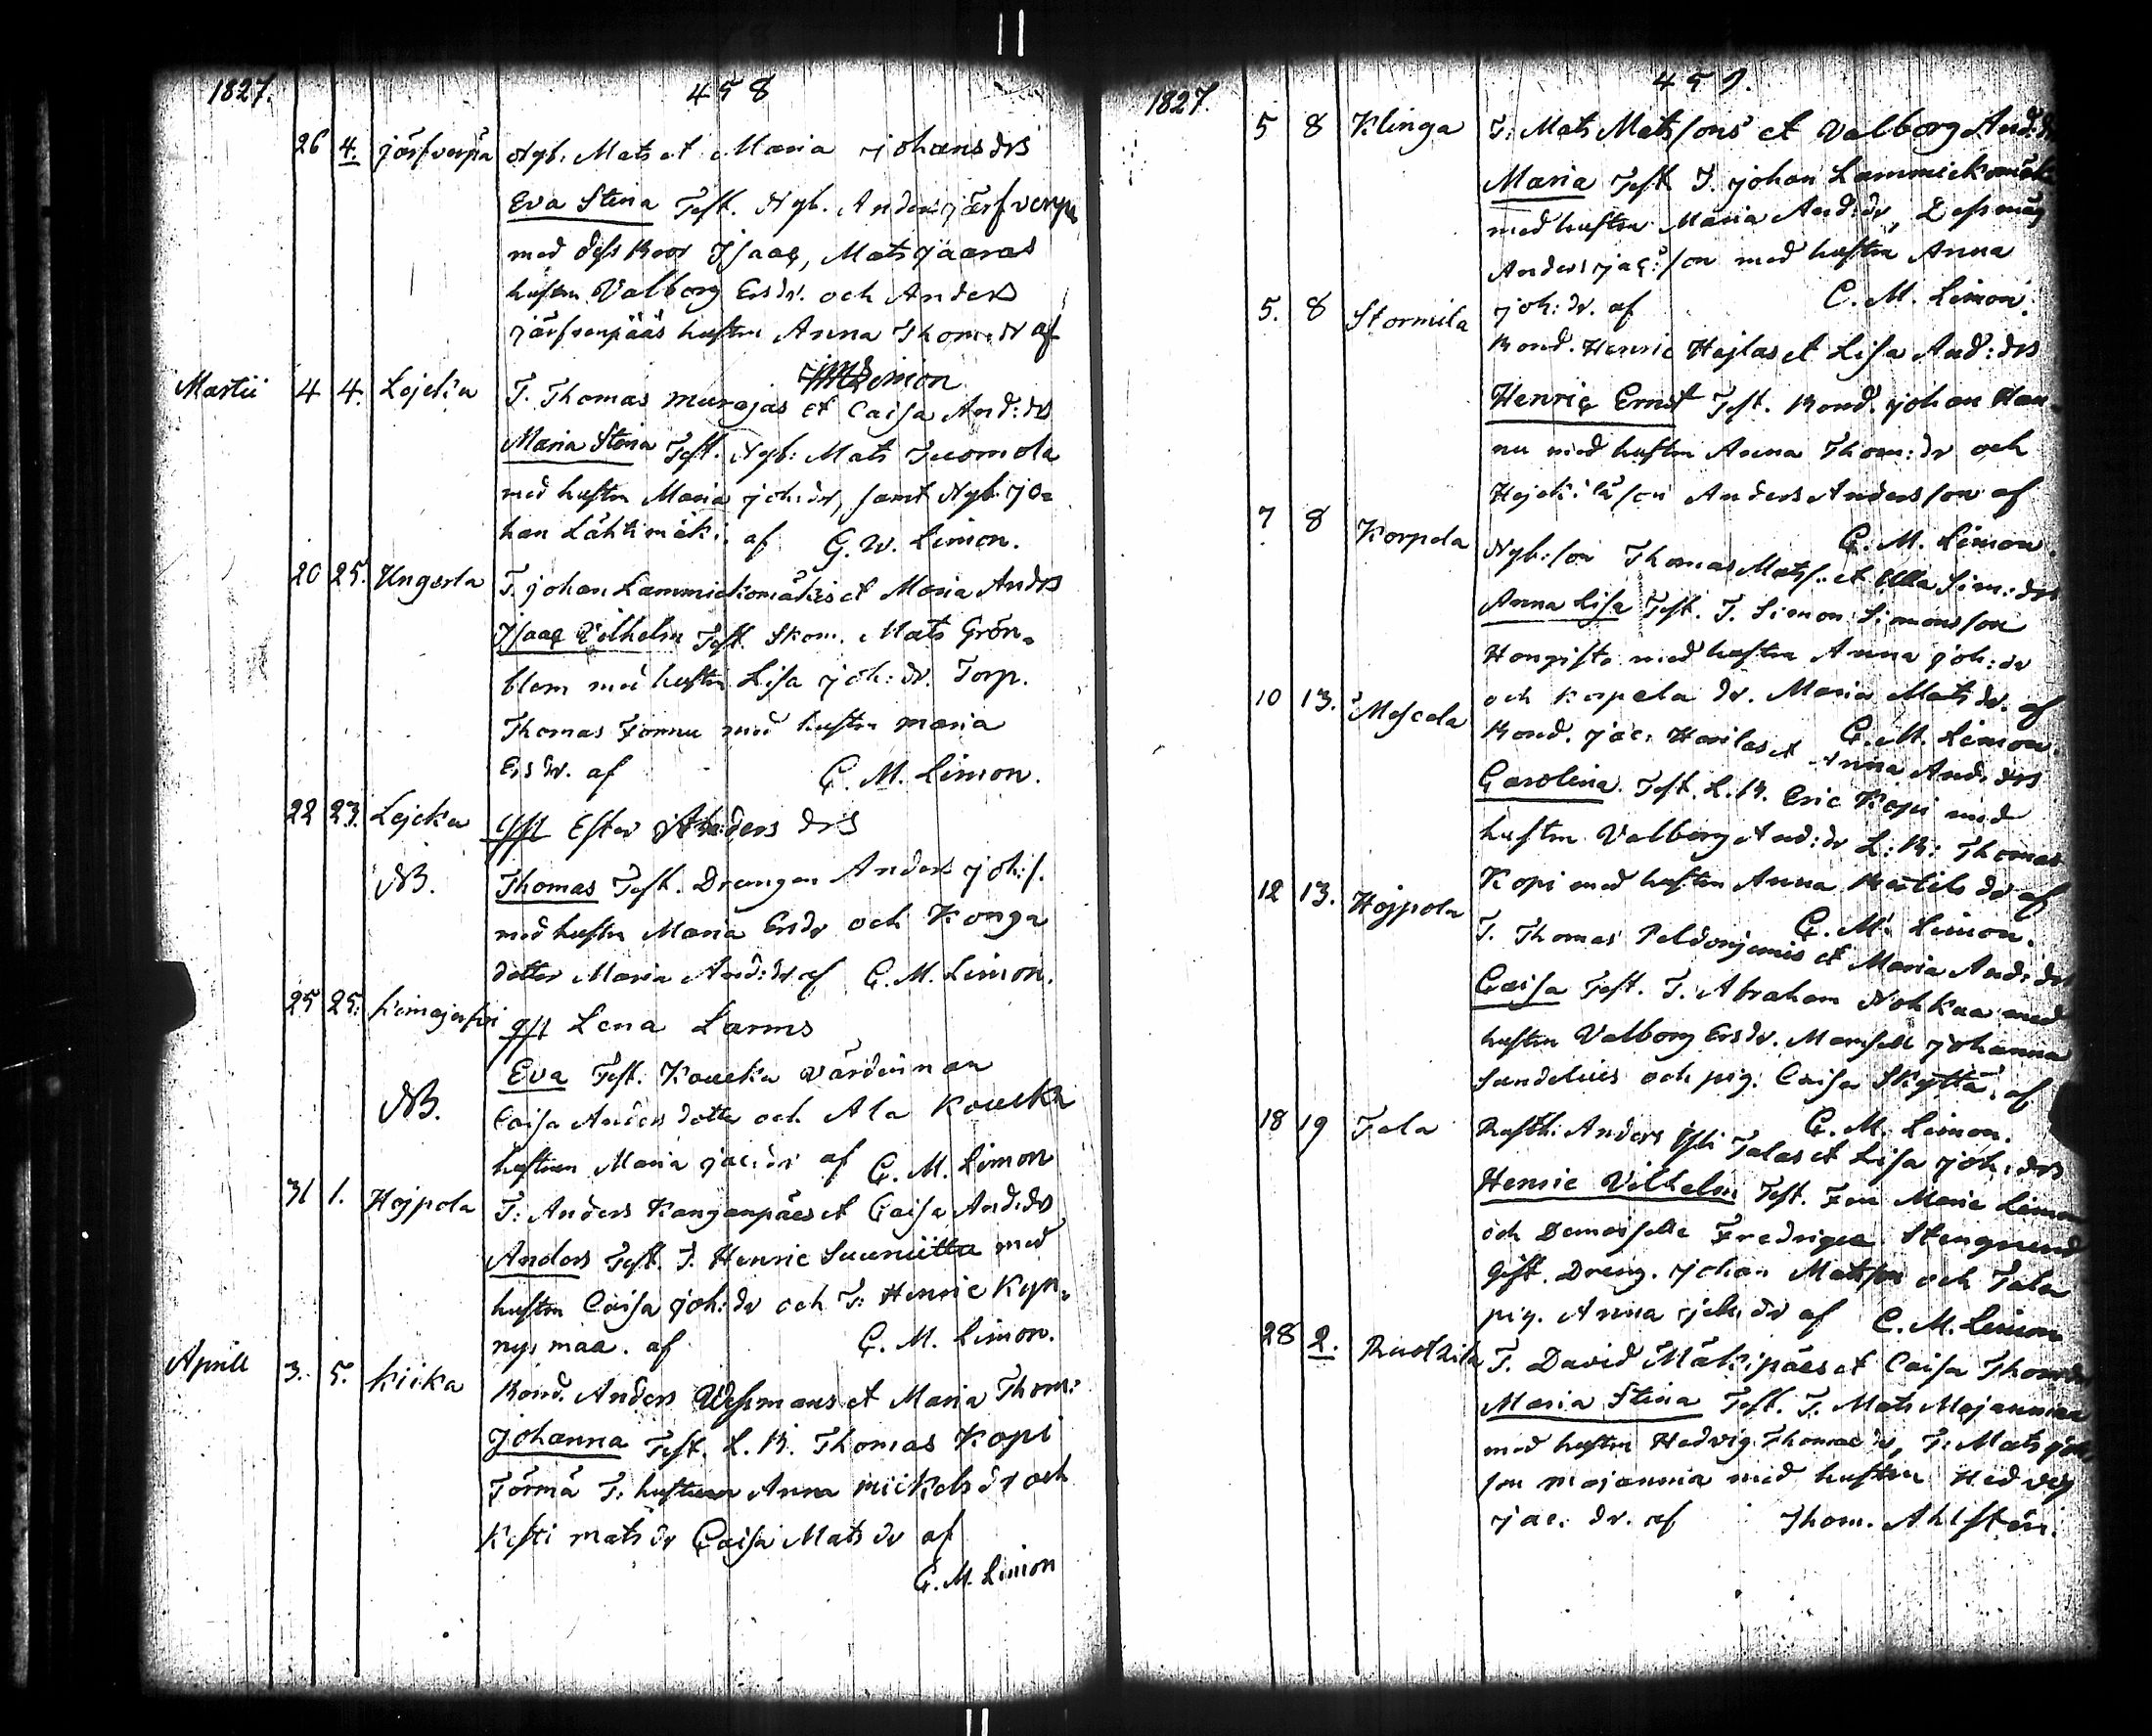 1827. 458
26 4. järfvenpä Nyb. Mats et Maria johans drs
Eva Stina Test. Nyb. Anders järfvenpä
med dess Bror Isaac, Mats jaaras
hustru Valborg Ersdr. och Anders
järfvenpääs hustru Anna Thom:dr af
Limon
Martii 4 4. Lejcku T. Thomas Murajas et Caisa And:drs
Maria Stina Test. Nyb: Mats Tuomola
med hustru Maria joh:dr, samt Nyb. jo=
han Lähtimäki. af G. W. Limon.
20 25. Ungerla T. johan Lammickomäkis et Maria Andrs
Isaac Vilhelm Test. Skom. Mats Grön=
blom med hustru Lisa joh:dr. Torp.
Thomas Fonnu med hustru Maria
Ersdr. af G. M. Limon.
22 23. Lejcku Qfst Ester Anders drs
NB. Thomas Test. Drengen Anders joh:s.
med hustru Maria Ersdr och Konga
dotter Maria And:dr af G. M. Limon.
25 25. Kimajerfvi qfst Lena Larms
Eva Test. Koucku Värdinnan
NB. Caisa Anders dotter och Ala Koucku
hustrun Maria jac:dr af G. M. Limon
31 1. Hojpola T: Anders Kanganpäes et Caisa And:drs
Anders Test. T. Henric Suuniitta med
hustru Caisa joh:dr och T: Henric Kyn=
nysmaa. af G. M. Limon.
Aprill 3. 5. Kiika Bond. Anders Uhsmans et Maria Thom:
Johanna Test. L. B. Thomas Kopi
Törmä T: hustrun Anna Mickels dr och
Kisti Mats dr Caisa Mats dr af
G. M. Limon
1827. 459.
5 8 Klinga T: Mats Matssons et Valborg And:dr
Maria Test T. johan Lammickomäki
med hustru Maria And:dr, Dess måg
Anders jac:son med hustru Anna
joh:dr. af G. M. Limon.
5. 8 Stormila Bond. Henric Hejlas et Lisa And:drs
Henric Ernst Test. Bond. johan Han=
nu med hustru Anna Thom:dr och
Hejckilä son Anders Andersson af
G. M. Limon.
7 8 Korpela Nyb:son Thomas Mats s. et Ulla Sim:drs
Anna Lisa Test. T. Simon Simonsson
Hongisto med hustru Anna joh:dr
och Korpela dr. Maria Mats dr. af
G. M. Limon.
10 13. Moscala Bond. jac: Hanilas et Anna And:drs
Carolina Test. L. B. Eric Kopi med
hustru Valborg And:dr L: B: Thomas
Kopi med hustru Anna Bertils dr af
G. M. Limon.
12 13. Hojpola T. Thomas Peldonjemis et Maria And:drs
Caisa Test. T. Abraham Nohkaa med
hustru Valborg Ersdr. Mamsell johanna
Sundelius och pig. Caisa Skyttä. af
G. M. Limon.
18 19 Tala Rusth: Anders Talas et Lisa joh:drs
Henric Vilhelm Test. Fru Maria Limon
och Demoiselle Fredrique Stengrund
Gift. Dreng. johan Matsson och Tala
pig. Anna joh:dr af G. M. Limon
28 2. Ruotzila T. David Mäkipäes et Caisa Thom:drs
Maria Stina Test. T. Mats Majanmaa
med hustru Hedvig Thomas dr, T: Mats joh:
son Majanmaa med hustru Hedvig
jac: dr. af Thom. Ahlsten.